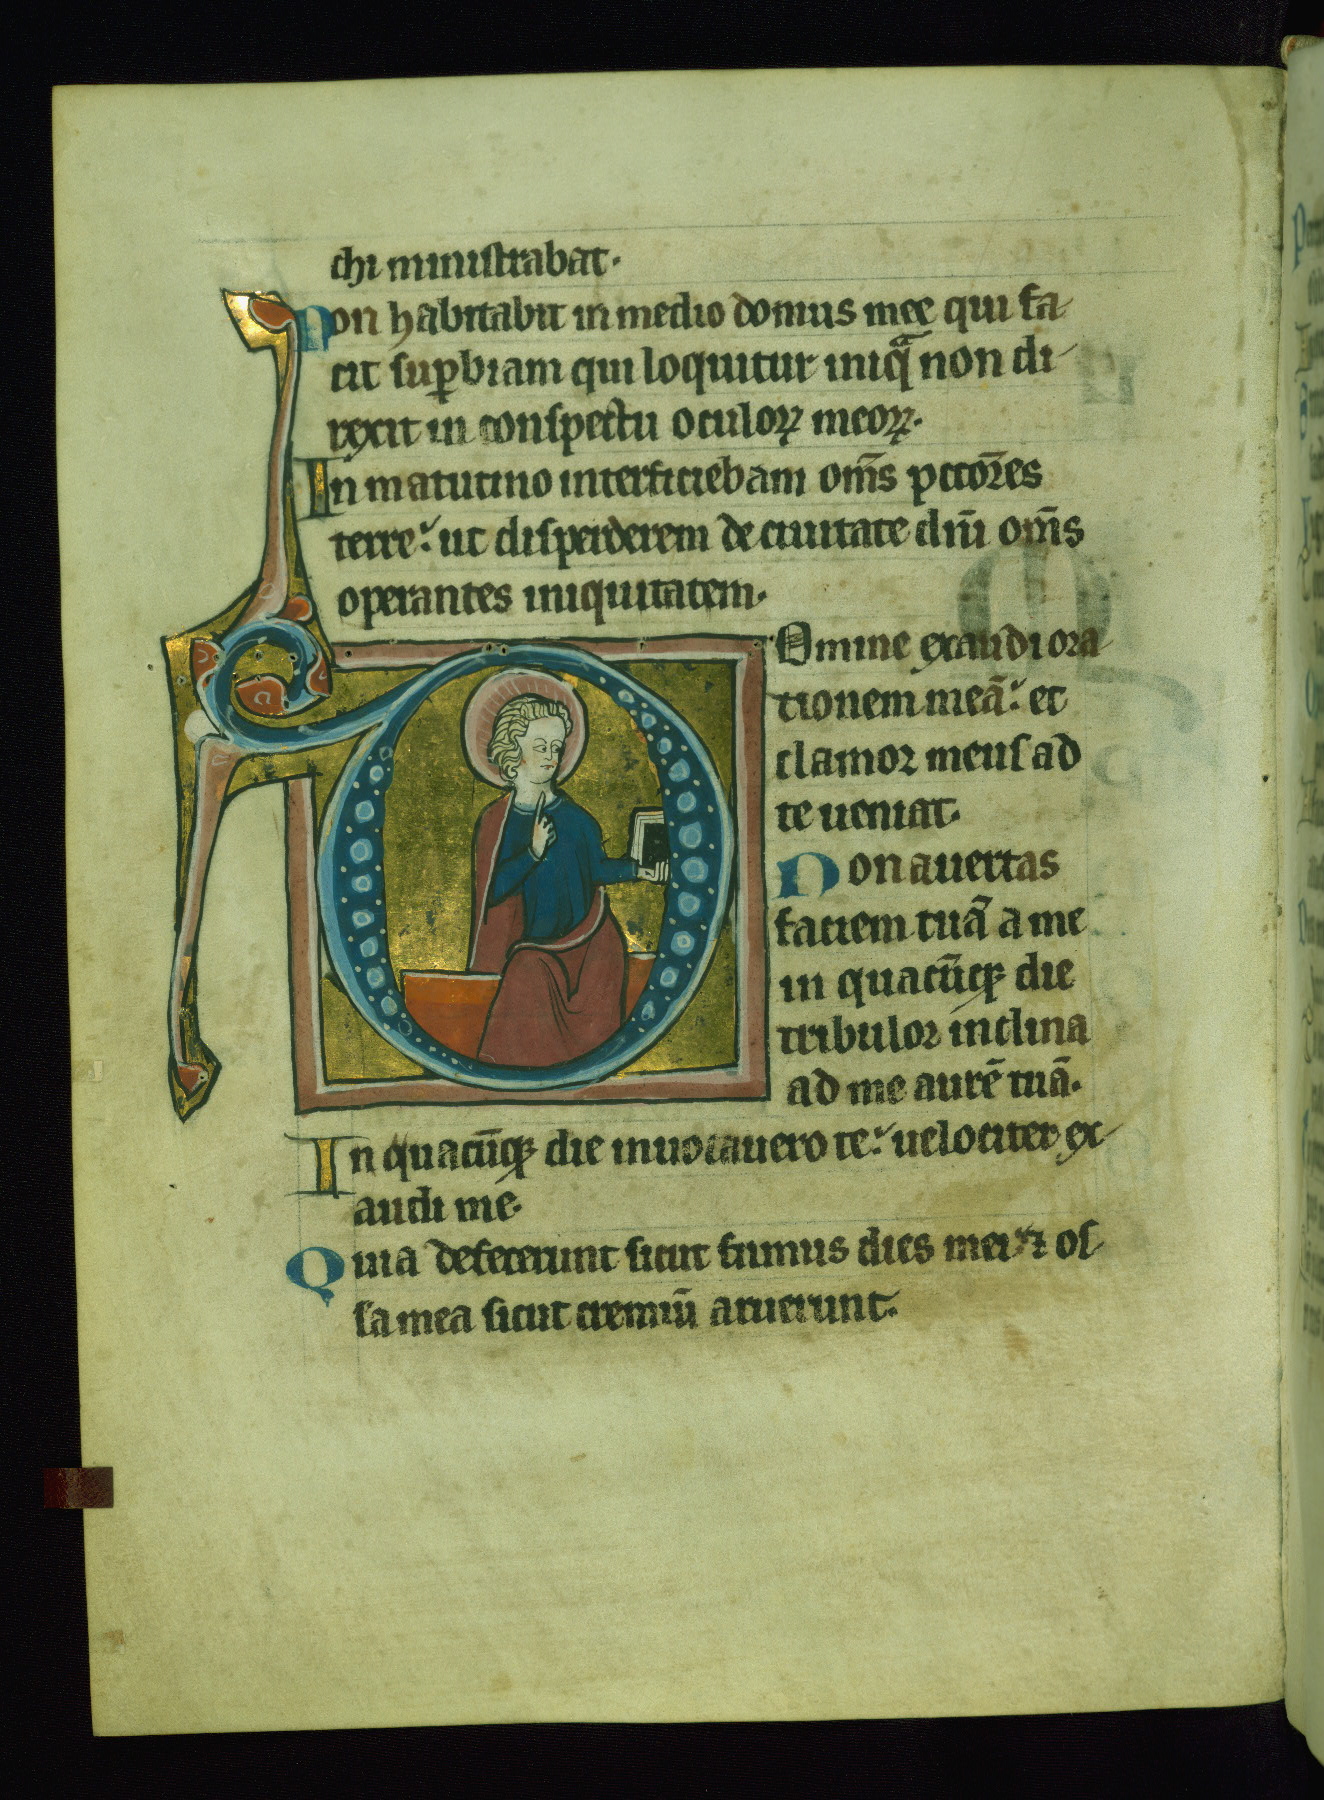 chi ministrabat.
Non habitabit in medio domus mee qui fa
cit suꝑbiam qui loquitur iniqͣ non di
rexit in conspectu oculoꝝ meoꝝ.
In matutino interficiebam om̄s pctōres
terre: ut disperderem de ciuitate dn̄i om̄s
operantes iniquitatem.
Domine exaudi ora
tionem meā: et
clamor meus ad
te ueniat.
Non auertas
faciem tuā a me
in quacūqꝫ die
tribulor inclina
ad me aurē tuā.
In quacūqꝫ die inuocauero te: uelociter ex
audi me.
Quia defecerunt sicut fumus dies mei: ⁊ os
sa mea sicut cremiū aruerunt.